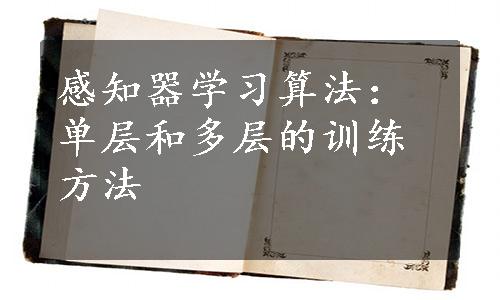 感知器学习算法：
单层和多层的训练
方法